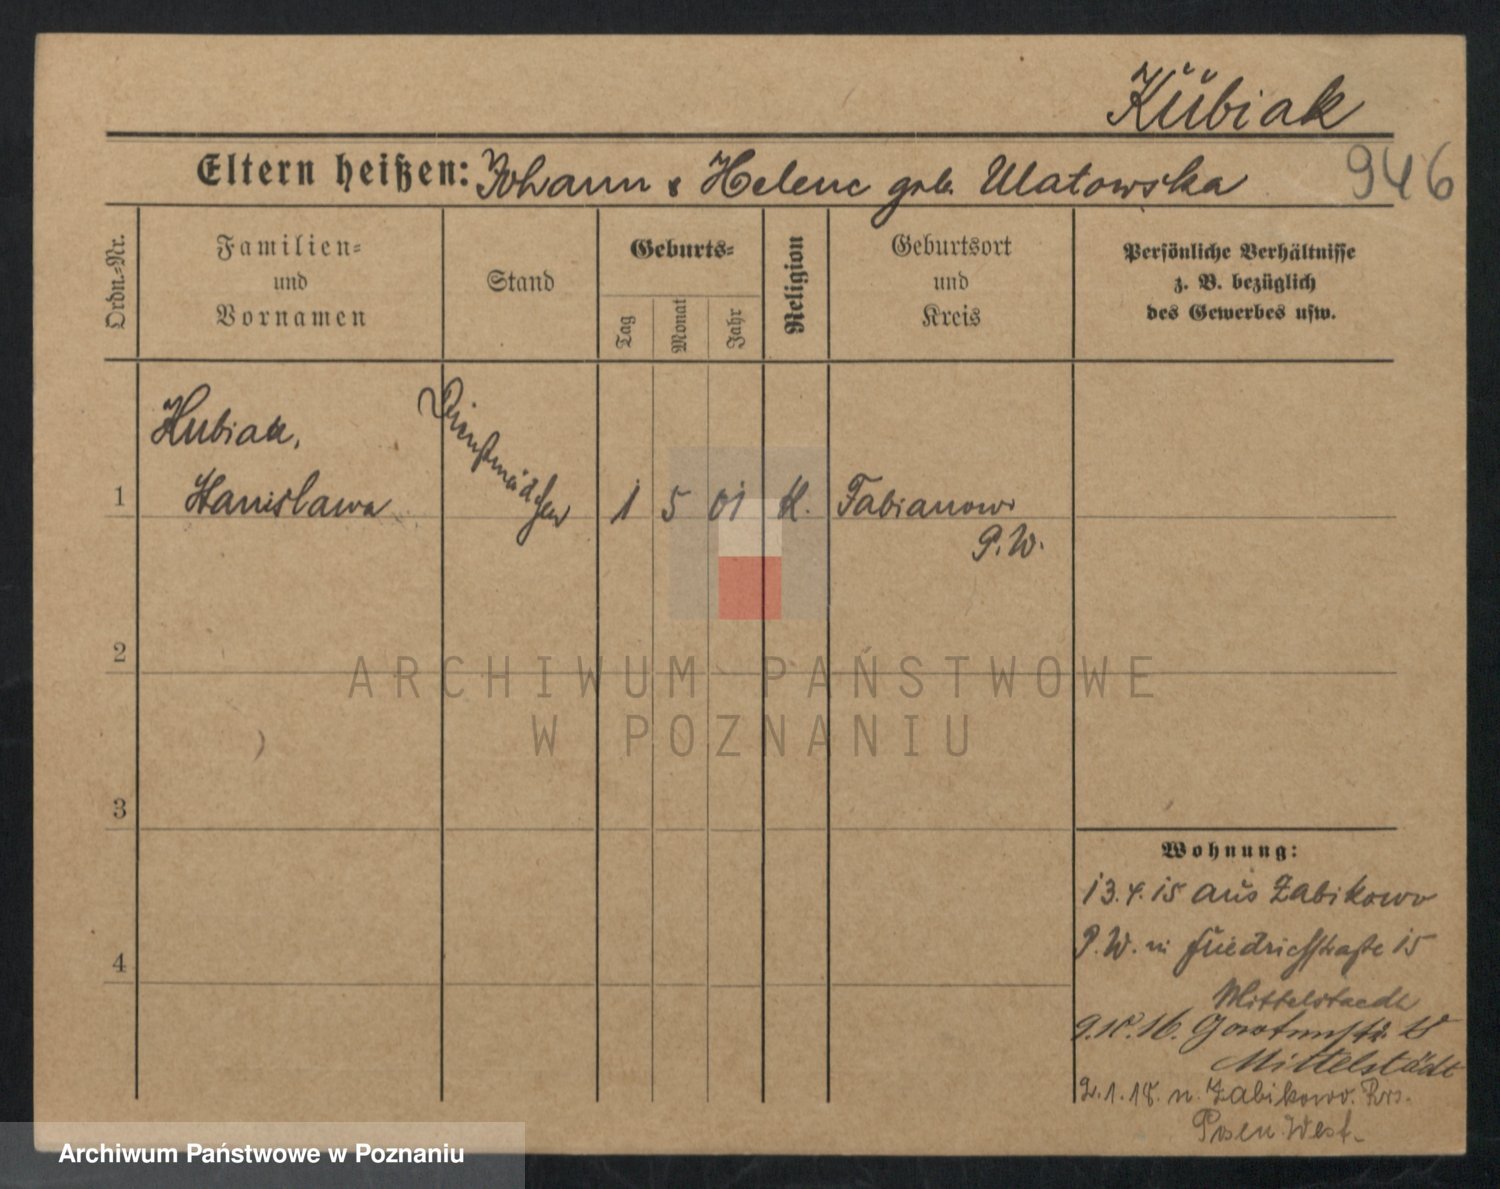 Kubiak
Eltern heißen: Johann & Helene geb. Ulatowska
946
Ordn.-Nr.
Familien-
und
Vornamen
Stand
Geburts-
Tag
Monat
Jahr
Religion
Geburtsort
und
Kreis
Persönliche Verhältnisse
z. B. bezüglich
des Gewerbes usw.
Kubiak,
Stanislawa
Dienstmädchen
1 1 5 01 K. Fabianowo
P.W.
2
3
4
ARCHIWUM PAŃSTWOWE
W POZNANIU
Wohnung:
13.4.15 aus Zabikowo
P.W. n Friedrichstraße 15
Mittelstaedt
Mittelstädt
2.1.18. n. Zabikowo. Krs.
Posen West.
Archiwum Państwowe w Poznaniu